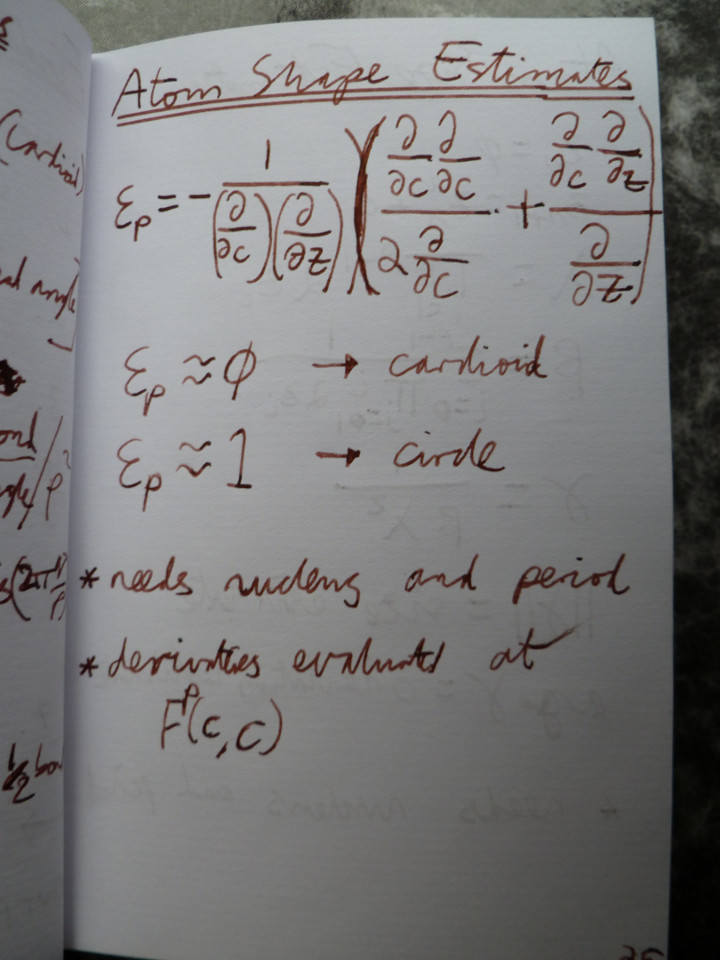 Atom Shape Estimates
ε_p = - 1/((∂/∂c)(∂/∂z)) ( (∂/∂c ∂/∂c)/(2 ∂/∂c) + (∂/∂c ∂/∂z)/(∂/∂z) )
ε_p ≈ ϕ → cardioid
ε_p ≈ 1 → circle
* needs nucleus and period
* derivatives evaluated at
F^p(c, c)
(cardioid)
angle